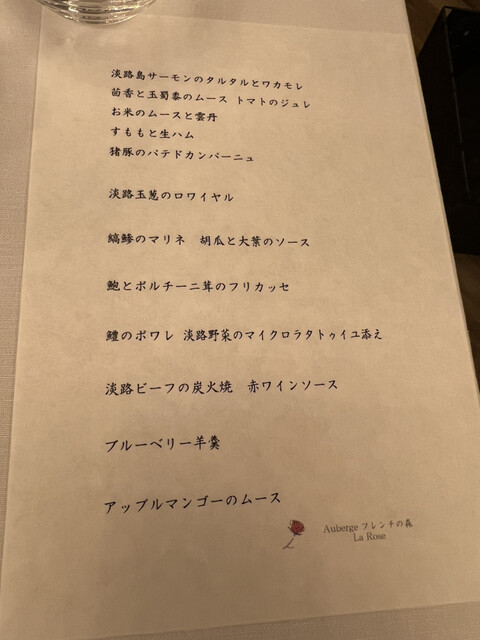 淡路島サーモンのタルタルとワカモレ
茴香と玉蜀黍のムース トマトのジュレ
お米のムースと雲丹
すももと生ハム
猪豚のパテドカンパーニュ
淡路玉葱のロワイヤル
縞鯵のマリネ 胡瓜と大葉のソース
鮑とポルチーニ茸のフリカッセ
鱧のポワレ 淡路野菜のマイクロラタトゥイユ添え
淡路ビーフの炭火焼 赤ワインソース
ブルーベリー羊羹
アップルマンゴーのムース
Auberge フレンチの森
La Rose